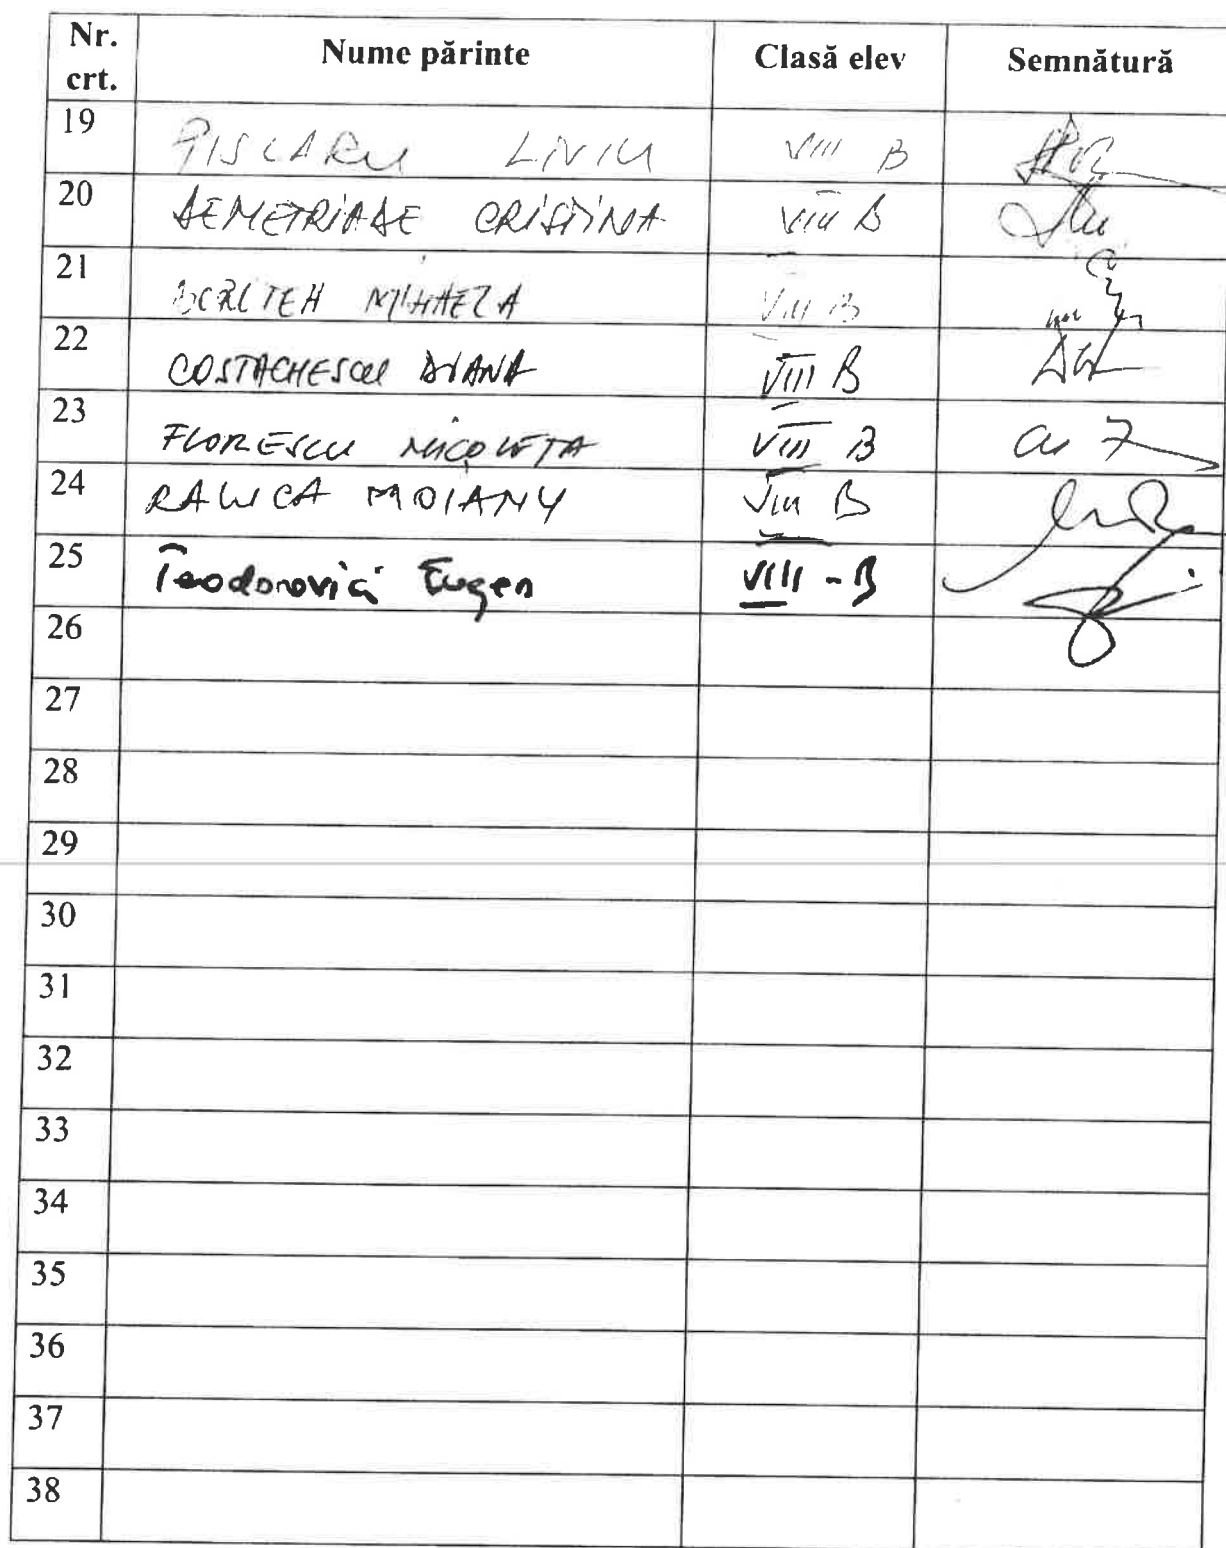 Nr. crt. Nume părinte Clasă elev Semnătură
19 PISCARU LIVIU VIII B
20 DEMETRIADE CRISTINA VIII B
21 MIHAELA VIII B
22 COSTACHESCU DIANA VIII B
23 FLORESCU NICOLETA VIII B
24 RALUCA MOIANU VIII B
25 Teodorovici Eugen VIII - B
26
27
28
29
30
31
32
33
34
35
36
37
38